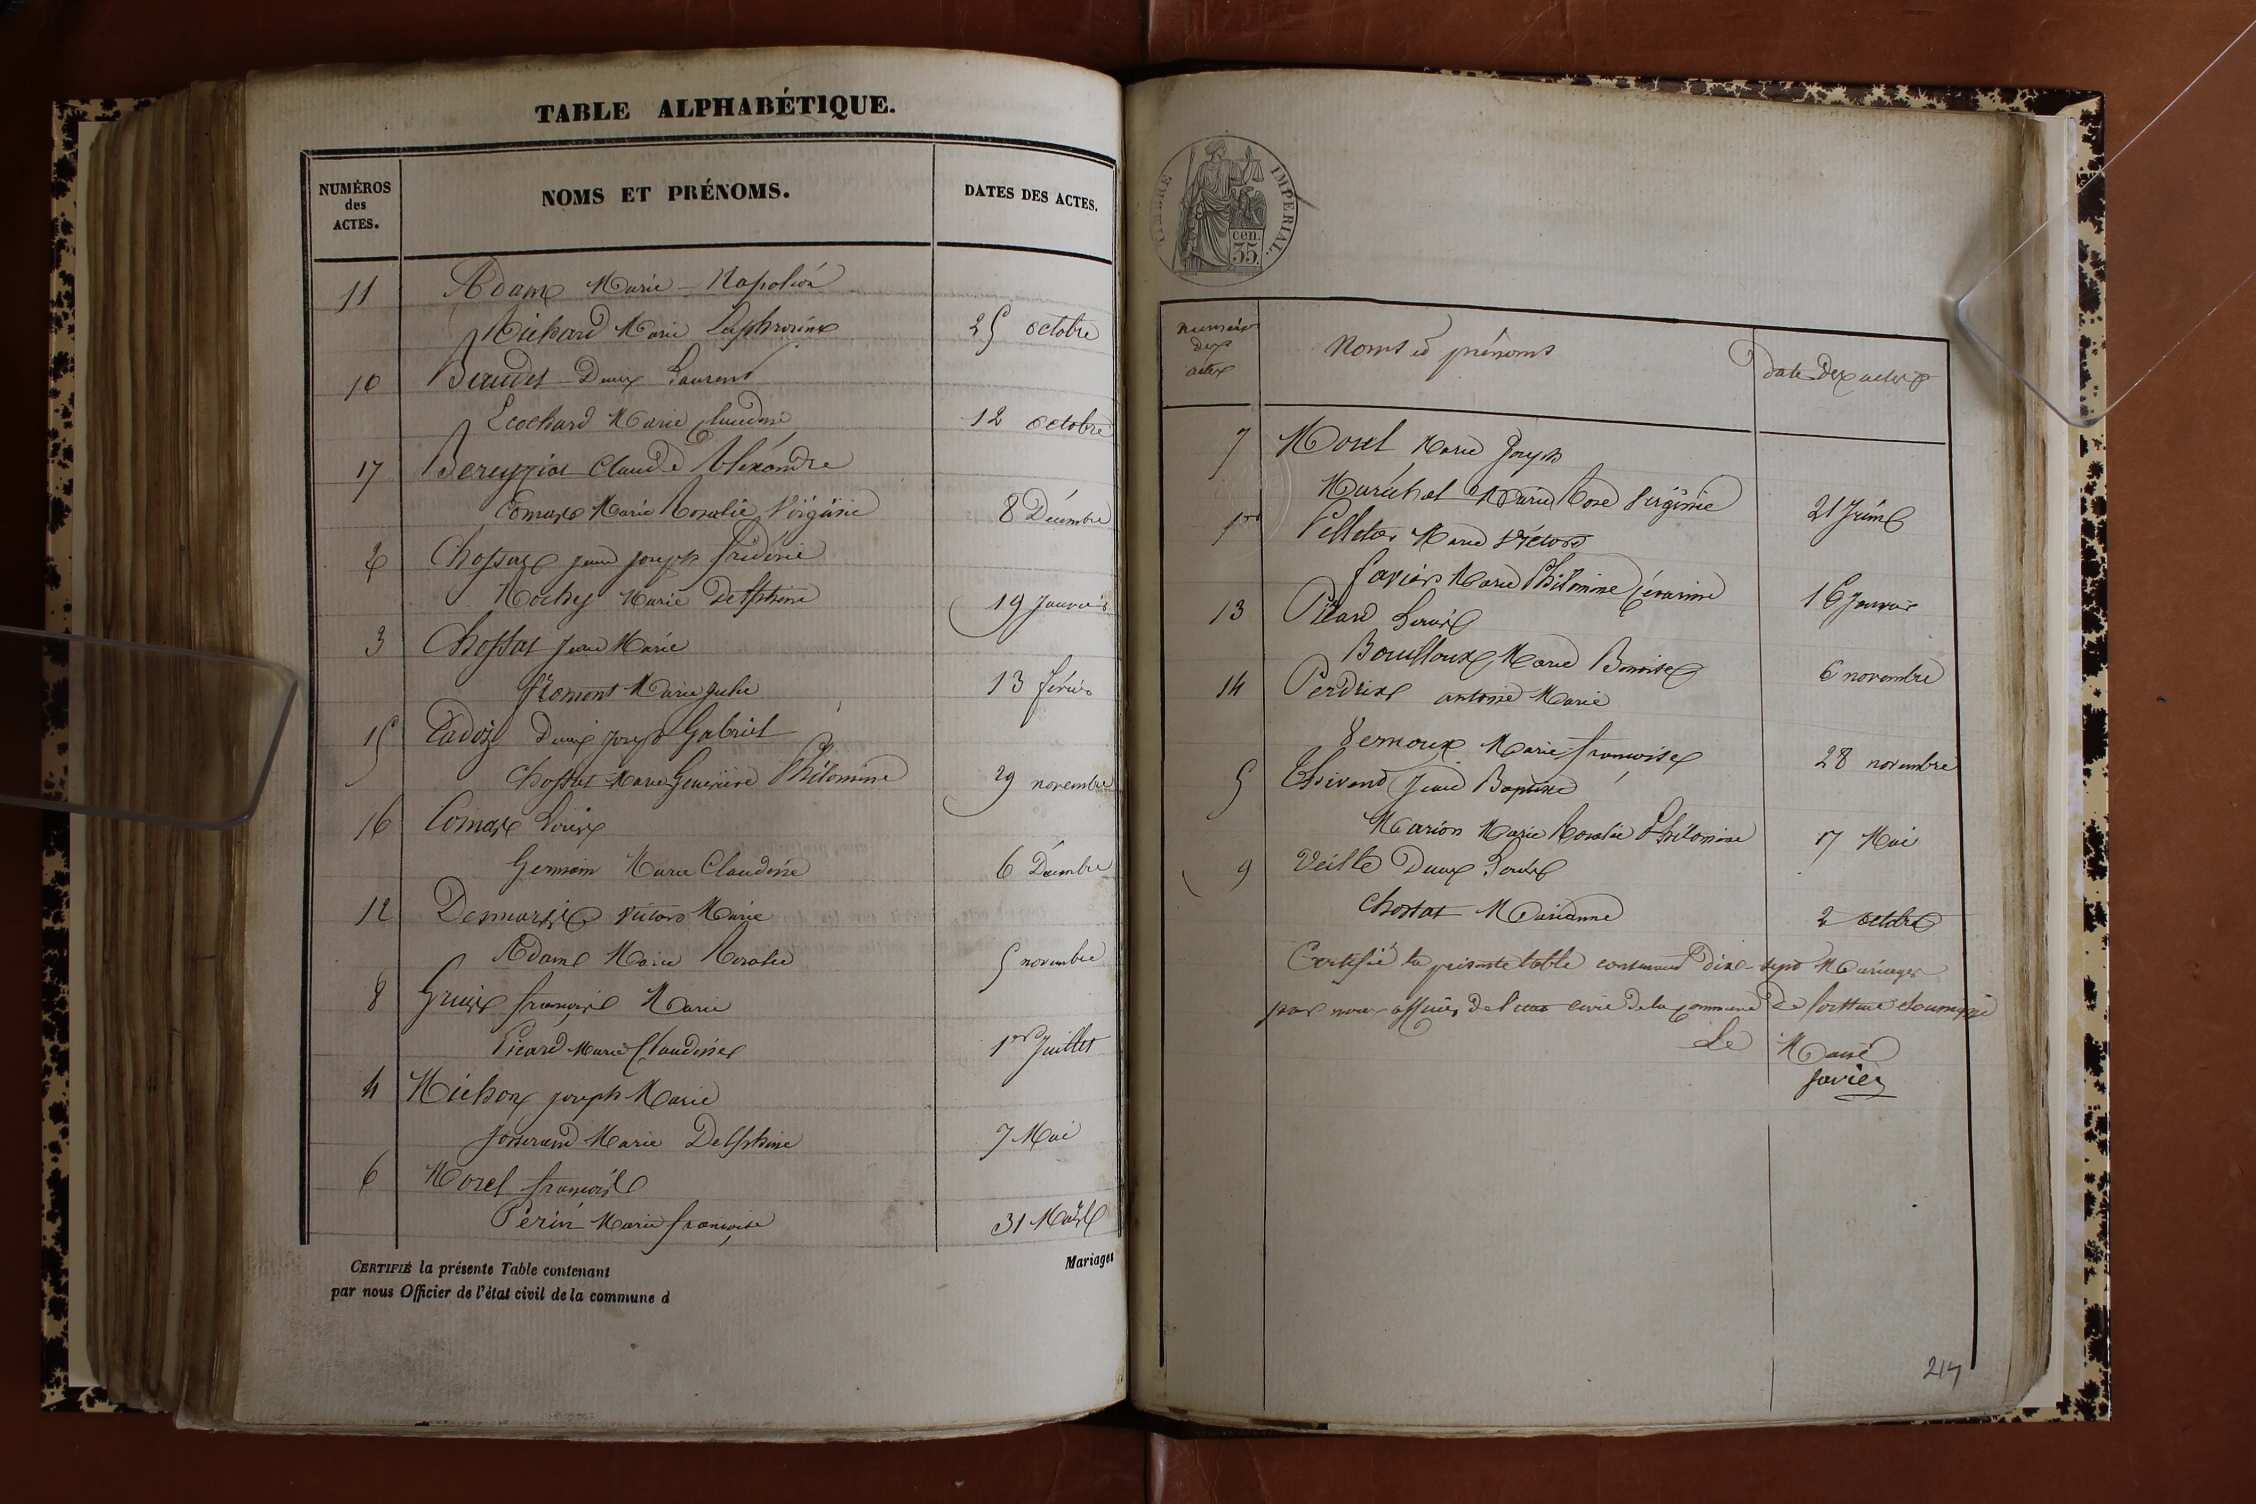 TABLE ALPHABÉTIQUE.
NUMÉROS
des
ACTES.
NOMS ET PRÉNOMS.
DATES DES ACTES.
11 Adam Marie Napoléon
Richard Marie 25 octobre
10 Laurent
Ecochard Marie Claudine 12 octobre
17 Bereyziat Claude Alexandre
Comas Marie Rosalie Virginie 8 Décembre
2 Chossat jean joseph frédéric
Rochy Marie Delphine 19 Janvier
3 Chossat Jean Marie
fromont Marie Julie 13 févrie
15 Cadoz Denis joseph Gabriel
Chossat Marie Geneviève Philomine 29 novembre
16 Comas Louis
Germain Marie Claudine 6 Décembre
12 Desmaris victor Marie
Adam Marie Rosalie 5 novembre
8 françois Marie
Picard Marie Claudine 1er Juillet
4 Michon joseph Marie
Josserand Marie Delphine 7 Mai
6 Morel françois
Perin Marie françoise 31 Mai
CERTIFIÉ la présente Table contenant
Mariages
par nous Officier de l'état civil de la commune d
TIMBRE IMPERIAL.
cen.
35.
numéro
des
actes
Noms et prénoms
date des actes
7 Morel Marie Joseph
Maréchal Marie Rose Virginie 21 Juin
1er Pelletier Marie Victor
favier Marie Philomine 16 Janvier
13 Picard Louis
Bouilloux Marie Benoite 6 novembre
14 Perdrix antoine Marie
Vernoux Marie françoise 28 novembre
5 Thivend Jean Baptiste
Marion Marie Rosalie Philomine 17 Mai
9 Veille Denis Louis
Chossat Marianne 2 octobre
Certifié la présente table contenant dix-sept Mariages
par nous officier de l'état civil de la commune de
Le Maire
favier
217